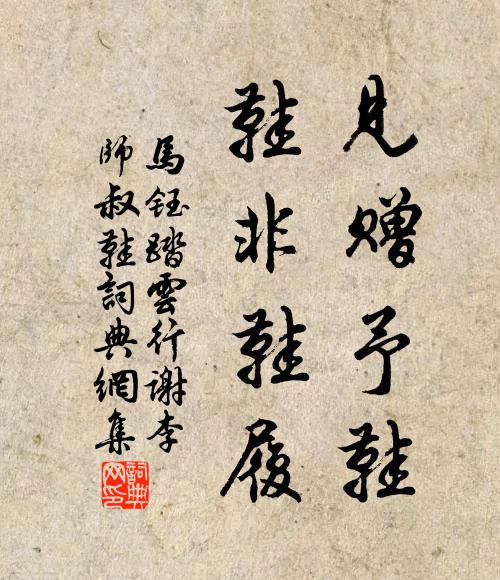 見贈予鞋
鞋非鞋履
馬鈺踏雲行謝李
師叔鞋詞典網集
詞典
网印